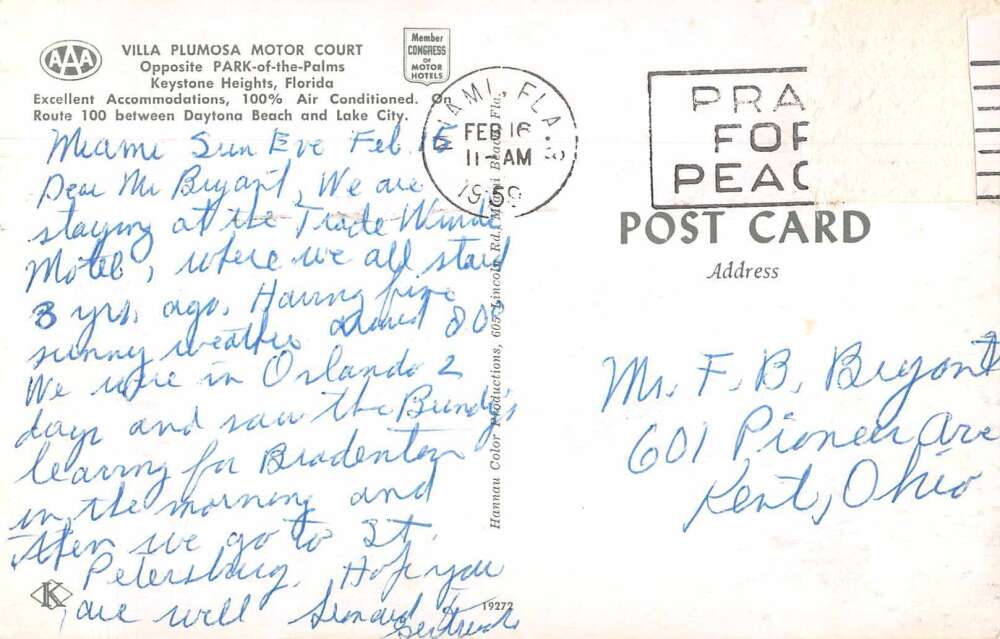 AAA
VILLA PLUMOSA MOTOR COURT
Opposite PARK-of-the-Palms
Keystone Heights, Florida
Excellent Accommodations, 100% Air Conditioned. On
Route 100 between Daytona Beach and Lake City.
Member
CONGRESS
OF
MOTOR
HOTELS
Miami Sun Eve Feb. 15
Dear Mr Bryant, We are
staying at the Trade Winds
Motel, where we all staid
3 yrs. ago. Having fine
sunny weather around 80°
We were in Orlando 2
days and saw the Bundy's
leaving for Bradenton
in the morning and
then we go to St.
Petersburg. Hope you
are well
Gertrude
K
19272
Hannau Color Productions, 605 Lincoln Rd., Miami Beach, Fla.
MIAMI, FLA. 3
FEB 16
11-AM
1959
PRA
FOR
PEAC
POST CARD
Address
Mr. F. B. Bryant
601 Pioneer Ave
Kent, Ohio